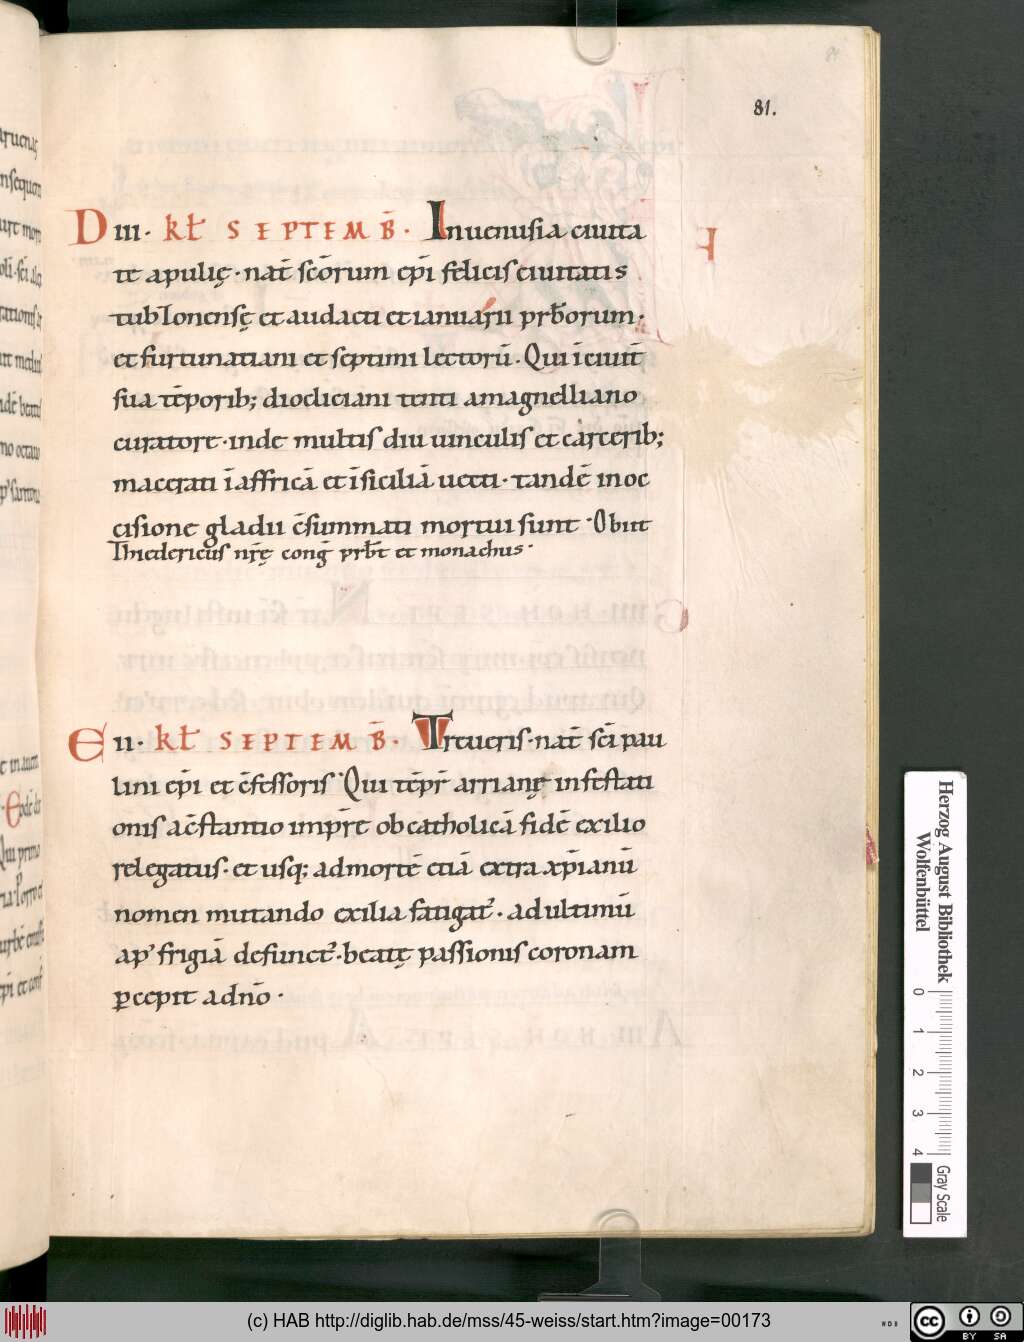 81.
D III· kł SEPTEMB̄· In uenusia ciuita
te apulię· nat̄ scōrum ep̄i felicis ciuitatis
tubzonensę et audacti et ianuarii prb̄orum·
et furtunatiani et septimi lectorū· Qui ī ciuit̄
sua tēporib; diocliciani tenti a magnelliano
curatore· inde multis diu uinculis et carcerib;
macerati ī affricā et ī siciliā uecti· tandē in oc
cisione gladii c̄summati mortui sunt· Obiit
Thiedericus nr̄ę conḡ prb̄t et monachus·
E II· kł SEPTEM B̄· Treueris· nat̄ sc̄i pau
lini ep̄i et c̄fessoris· Qui tēpr̄ arrianę infestati
onis a c̄stantio impr̄e ob catholicā fidē exilio
relegatus· et usq; ad mortē etiā extra xp̄ianū
nomen mutando exilia fatigat᾽· ad ultimū
ap᾽ frigiā defunct᾽· beatę passionis coronam
ꝑcepit a dn̄o·
Herzog August Bibliothek
Wolfenbüttel
0 1 2 3 4
Gray Scale
(c) HAB http://diglib.hab.de/mss/45-weiss/start.htm?image=00173
WDB
cc BY SA